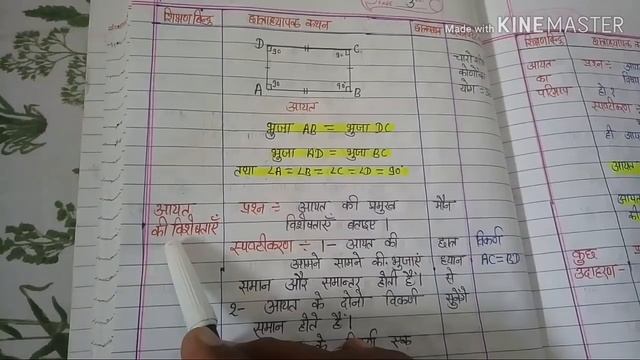 Made with KINEMASTER
शिक्षण बिन्दु
छात्राध्यापक कथन
D C
90 90
A 90 90 B
आयत
चारो
कोणों
योग =
भुजा AB = भुजा DC
भुजा AD = भुजा BC
तथा ∠A = ∠B = ∠C = ∠D = 90°
आयत
की विशेषताएँ
प्रश्न ÷ आयत की प्रमुख
विशेषताएँ बताइए ।
मौन
स्पष्टीकरण ÷ 1- आयत की
आमने सामने की भुजाएं
समान और समान्तर होती हैं।
2- आयत के दोनो विकर्ण
समान होते हैं।
छात्र
ध्यान
से
सुनेंगे
विकर्ण
AC = BD
शिक्षण बिन्दु
आयत
का
परिमाप
प्रश्न ÷
हो ?
स्पष्टीकरण
हो
आयत
कुछ
उदाहरण-